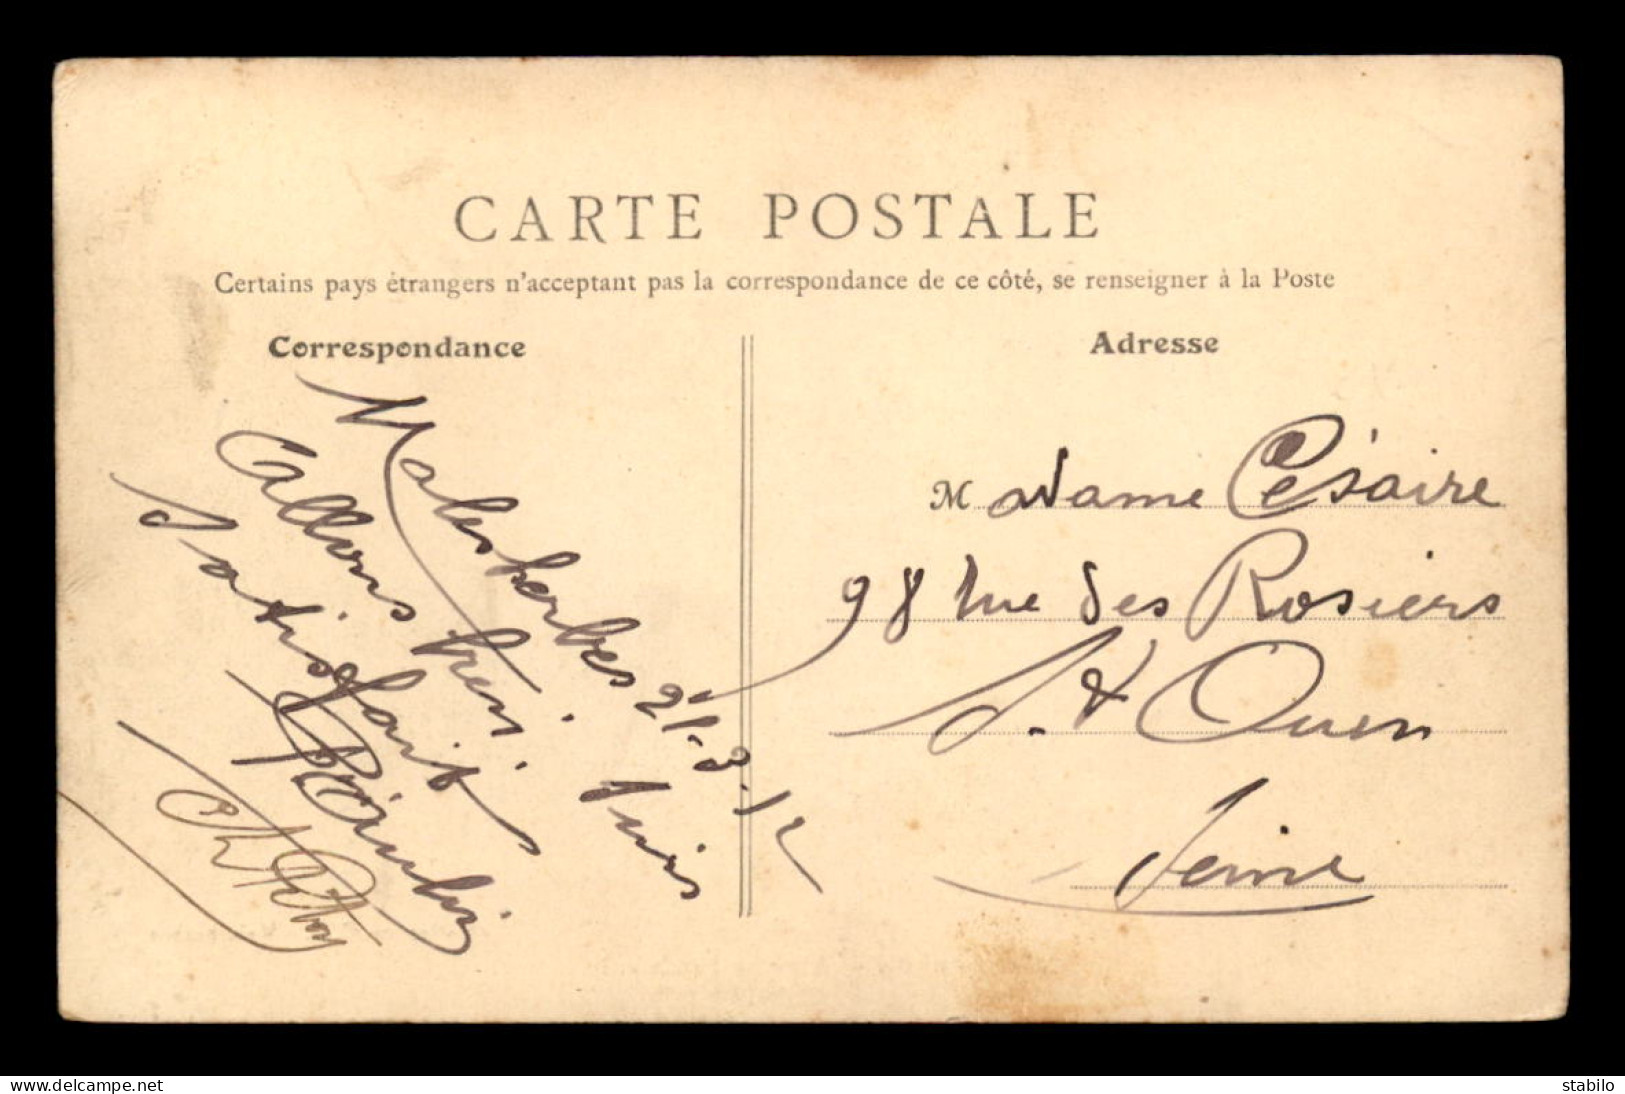 CARTE POSTALE
Certains pays étrangers n'acceptant pas la correspondance de ce côté, se renseigner à la Poste
Correspondance
Malesherbes 21.3.12
Allons bien.
Satisfait
Adresse
Madame Césaire
98 rue des Rosiers
St Ouen
Seine
delcampe.net
stabilo